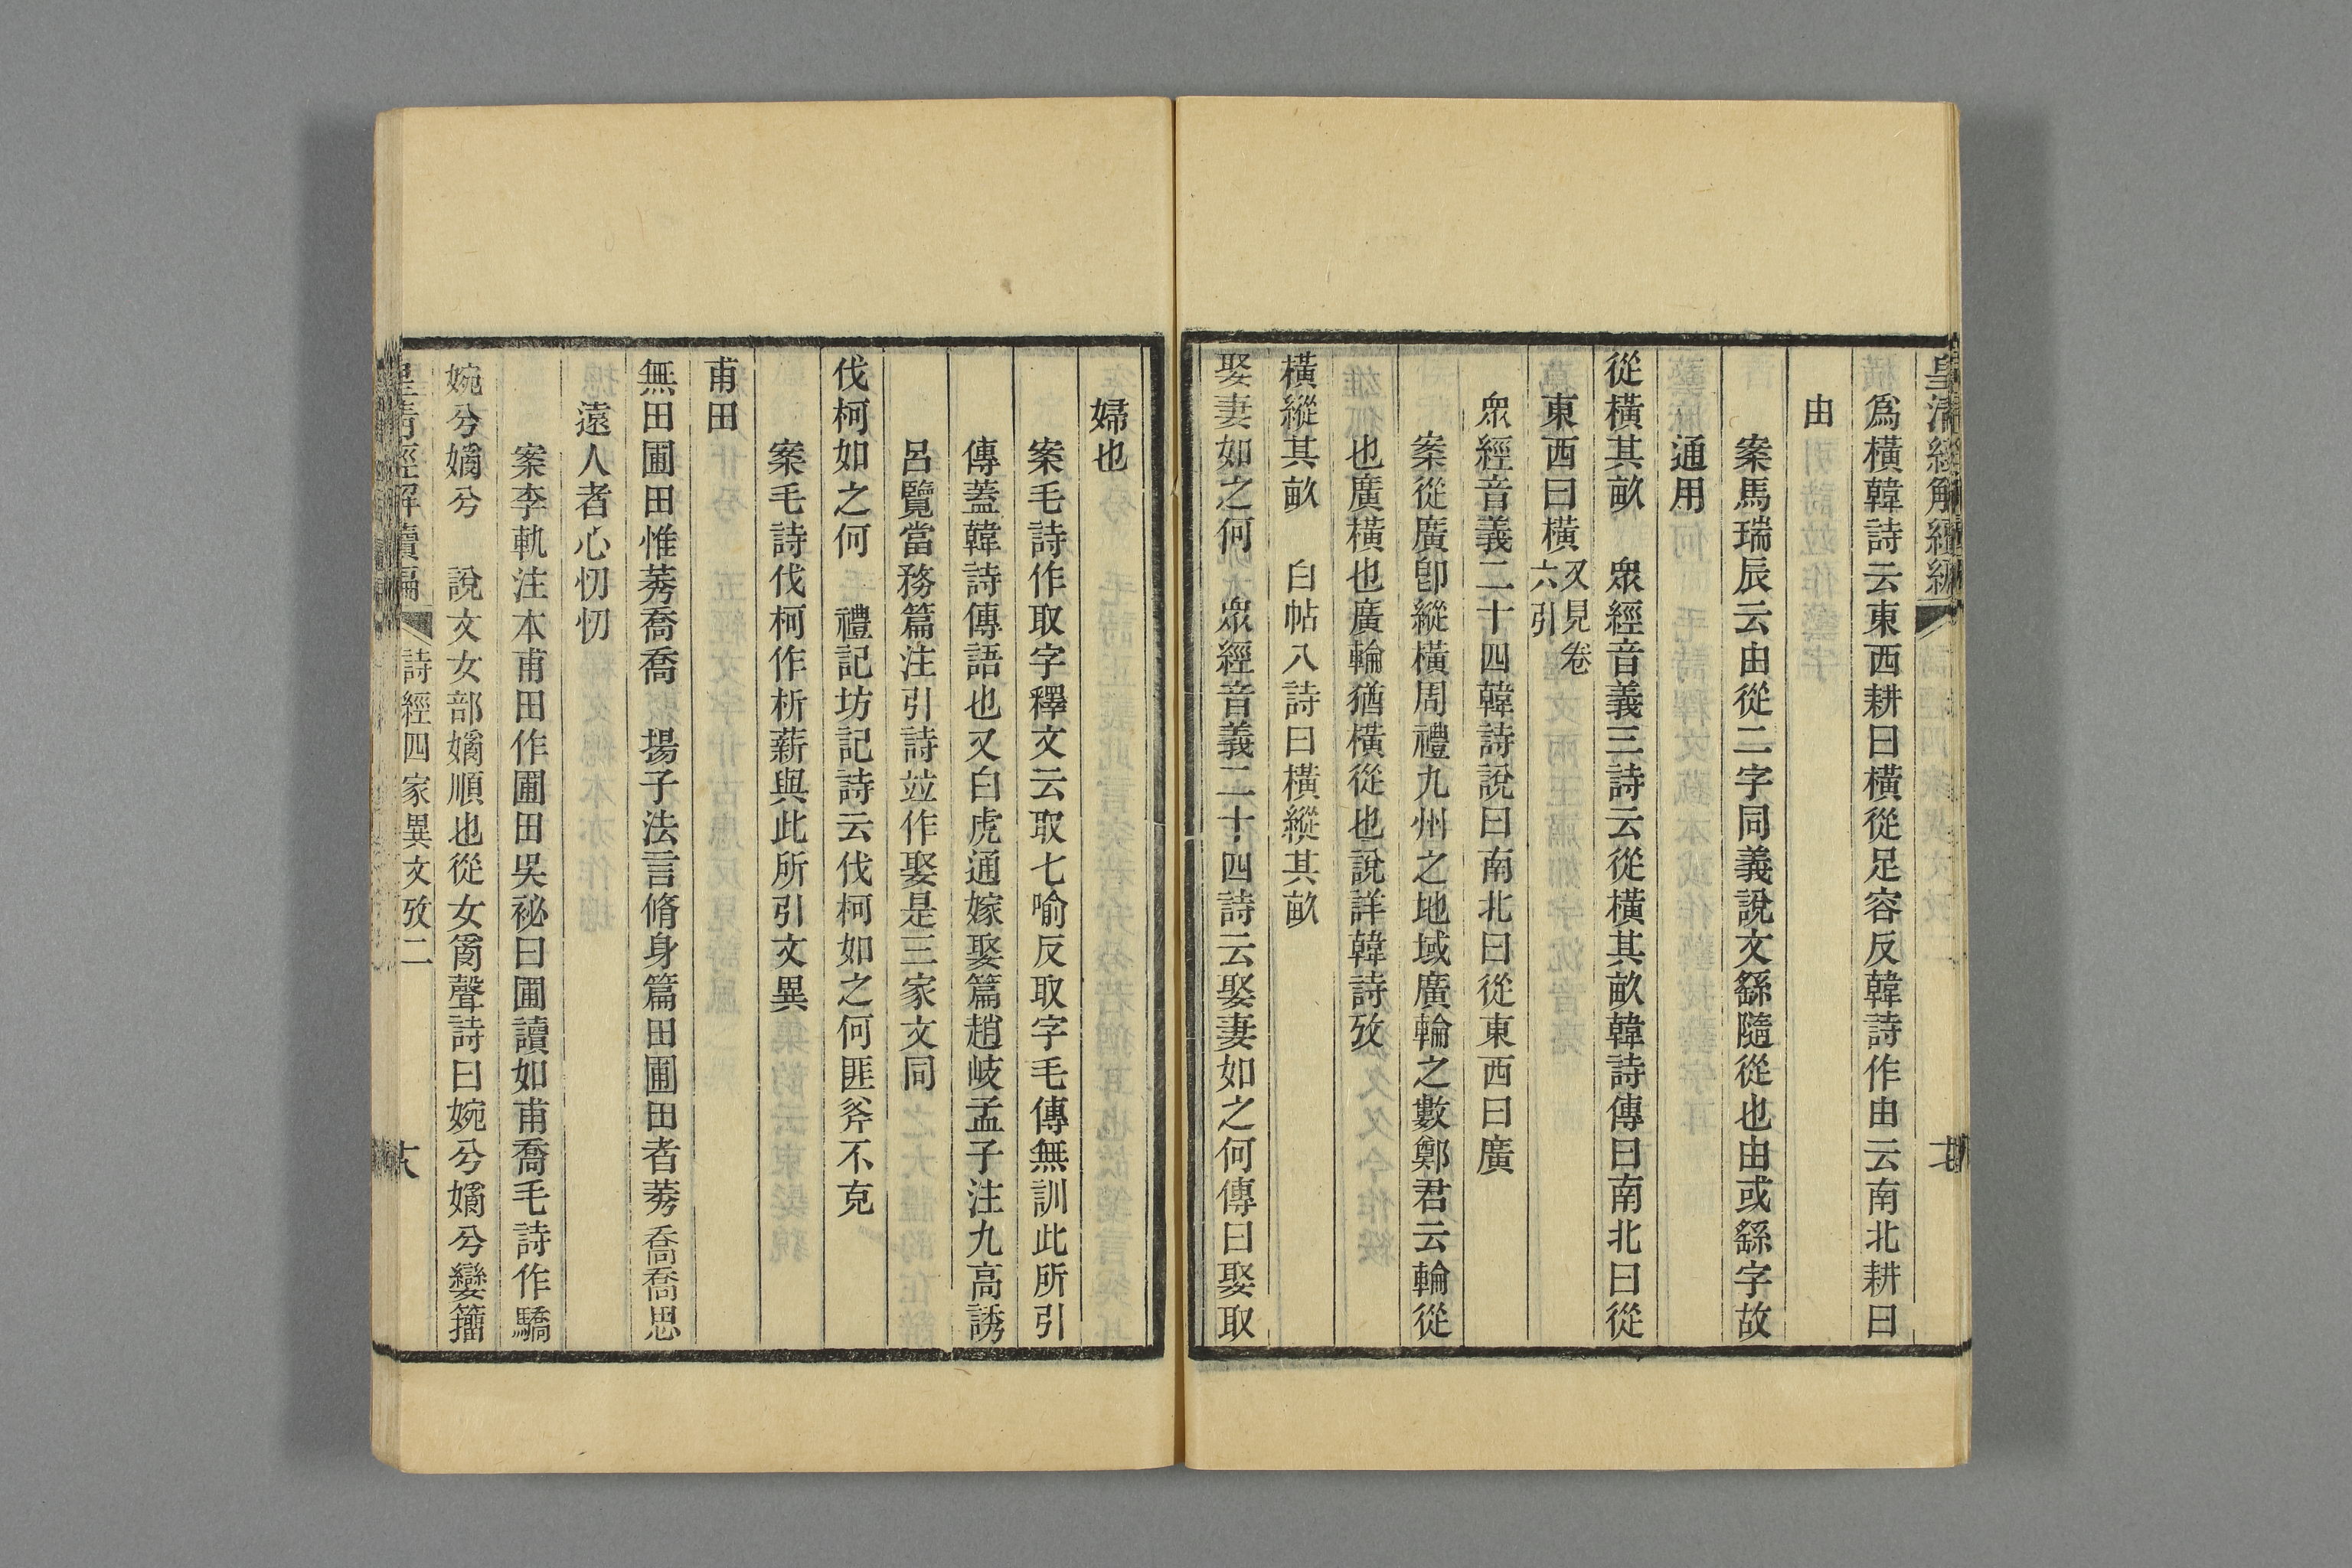 皇清經解續編
爲橫韓詩云東西耕曰橫從足容反韓詩作由云南北耕曰
由
案馬瑞辰云由從二字同義說文繇隨從也由或繇字故
通用
從橫其畝　衆經音義三詩云從橫其畝韓詩傳曰南北曰從
東西曰橫又見卷六引
衆經音義二十四韓詩說曰南北曰從東西曰廣
案從廣卽縱橫周禮九州之地域廣輪之數鄭君云輪從
也廣橫也廣輪猶橫從也說詳韓詩攷
橫縱其畝　白帖八詩曰橫縱其畝
娶妻如之何　衆經音義二十四詩云娶妻如之何傳曰娶取
婦也
案毛詩作取字釋文云取七喻反取字毛傳無訓此所引
傳蓋韓詩傳語也又白虎通嫁娶篇趙岐孟子注九高誘
呂覽當務篇注引詩竝作娶是三家文同
伐柯如之何　禮記坊記詩云伐柯如之何匪斧不克
案毛詩伐柯作析薪與此所引文異
甫田
無田圃田惟莠喬喬　揚子法言脩身篇田圃田者莠喬喬思
遠人者心忉忉
案李軌注本甫田作圃田吳祕曰圃讀如甫喬毛詩作驕
婉兮嫡兮　說文女部嫡順也從女啇聲詩曰婉兮嫡兮孌籀
皇清經解續編　詩經四家異文攷二